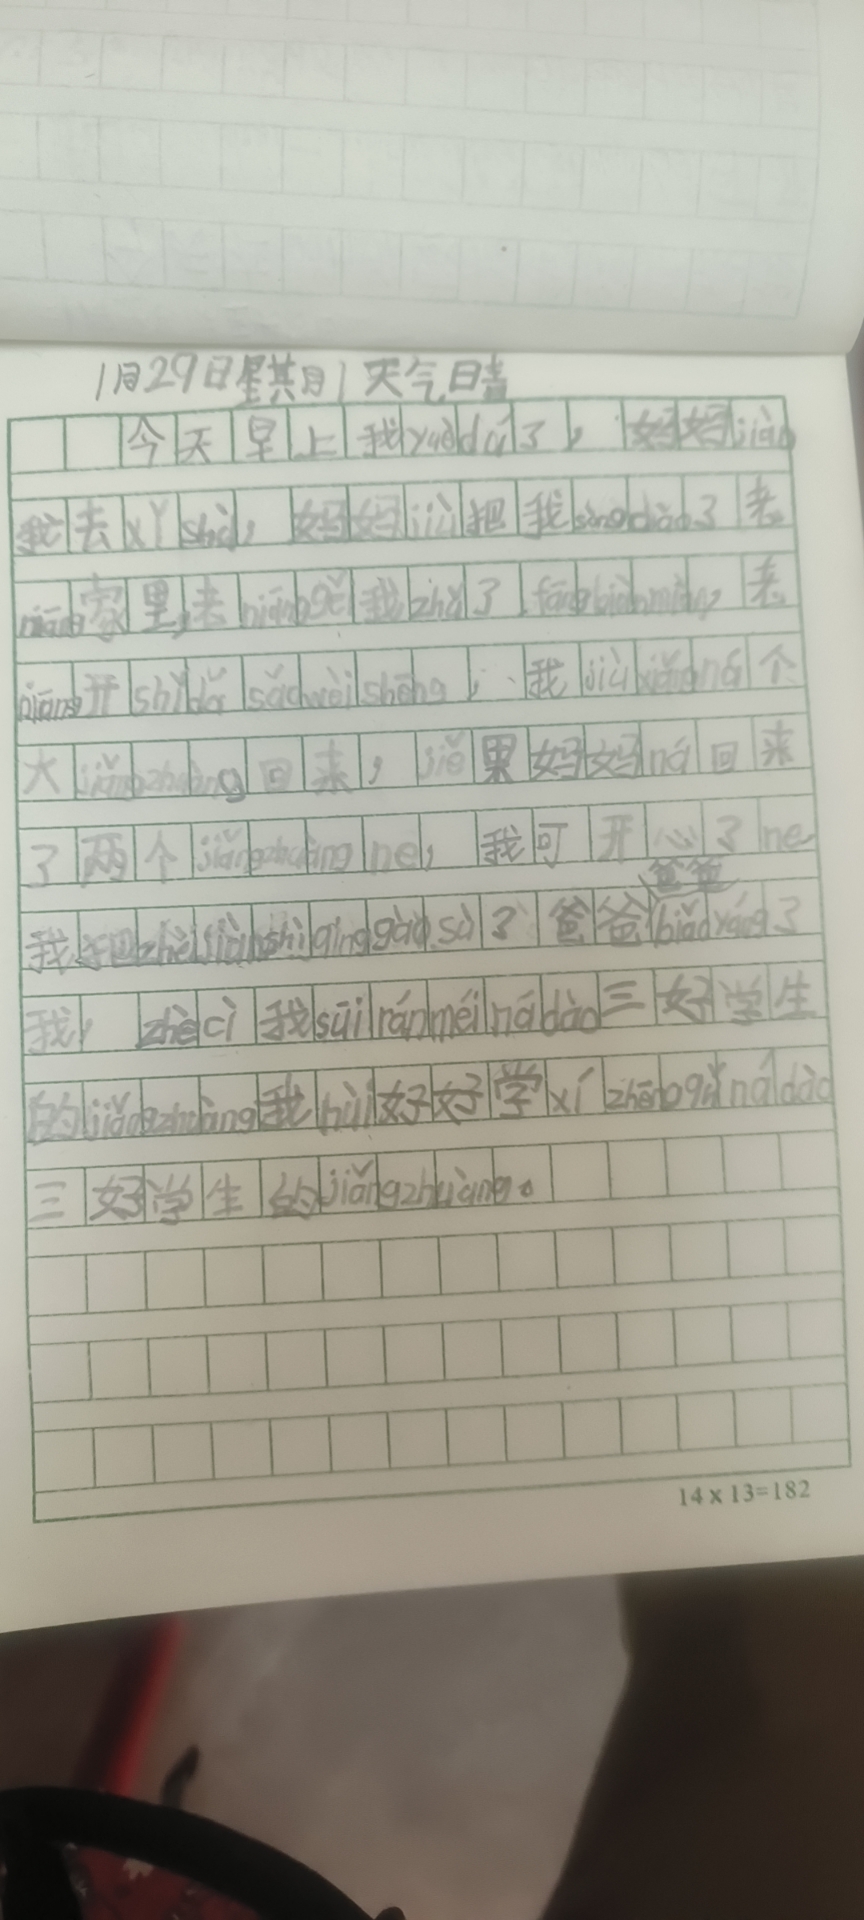 1月29日星其月1 天气日晴
今天早上我yuèdú了，妈妈jiào
我去xǐshù，妈妈jiù把我sòngdào了老
niáng家里，老niánggěi我zhǔ了fāngbiànmiàn，老
niáng开shǐdǎsǎowèishēng，我jiùxiǎngná个
大jiǎngzhuàng回来，jiě果妈妈ná回来
了两个jiǎngzhuàngne，我可开心了ne
爸爸
我把zhèjiànshìqínggàosù了爸爸biǎoyáng了
我，zhècì我suīránméinádào三好学生
的jiǎngzhuàng我hùi好好学xízhēngqǔnádào
三好学生的jiǎngzhuàng。
14×13=182